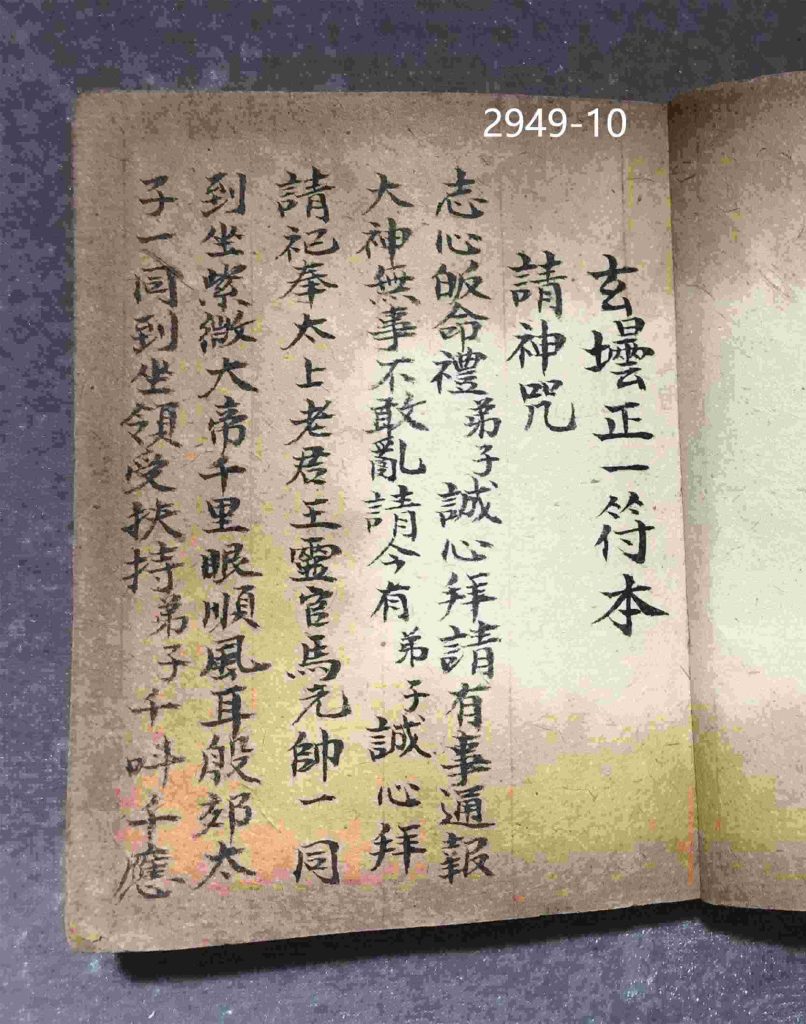 2949-10
玄壜正一符本
請神咒
志心皈命禮弟子誠心拜請有事通報
大神無事不敢亂請今有弟子誠心拜
請祀奉太上老君王靈官馬元帥一同
到坐紫微大帝千里眼順風耳殷郊太
子一同到坐領受扶持弟子千叫千應